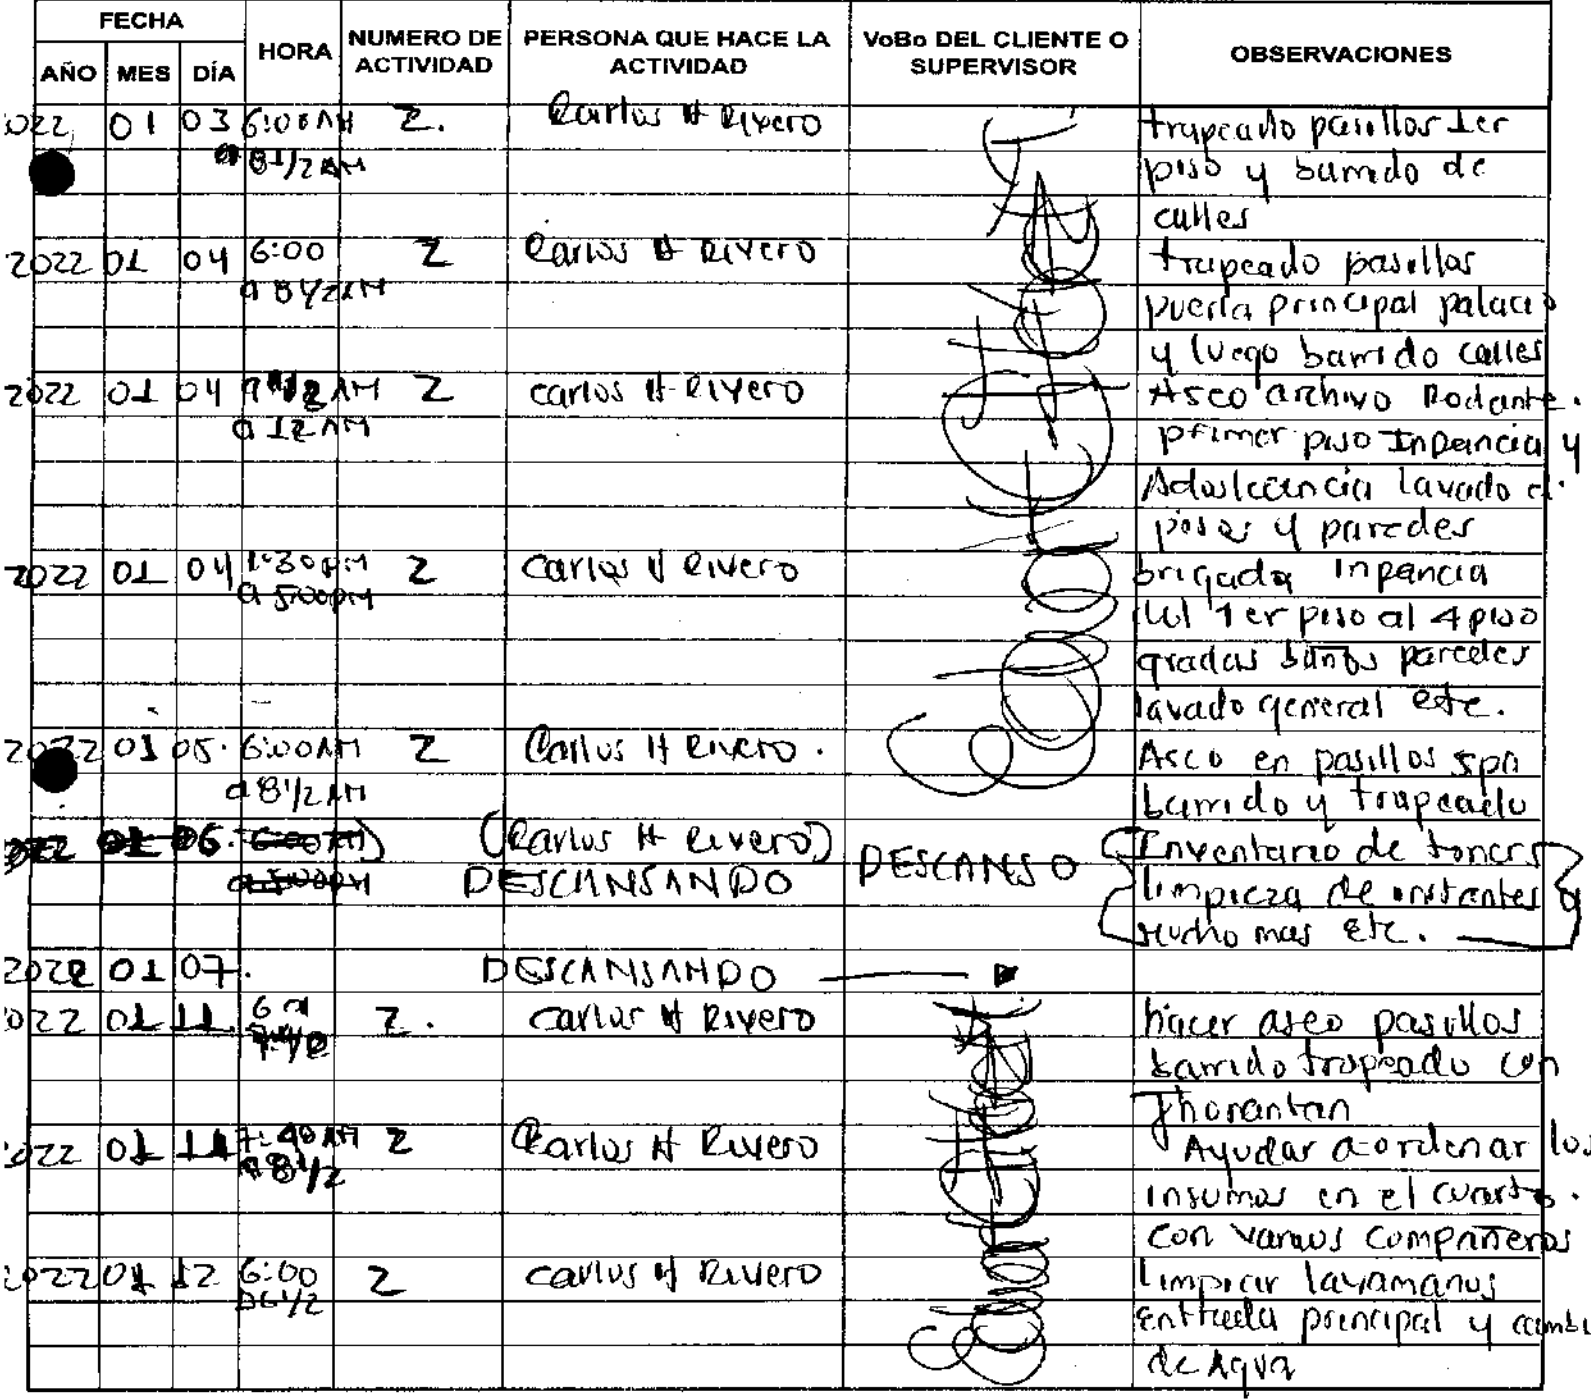 FECHA
HORA
NUMERO DE ACTIVIDAD
PERSONA QUE HACE LA ACTIVIDAD
VoBo DEL CLIENTE O SUPERVISOR
OBSERVACIONES
AÑO MES DÍA
2022 01 03 6:00 AM 2. Carlos H Rivero trapeado pasillos 1er
a 8 1/2 AM piso y barrido de
calles
2022 01 04 6:00 2 Carlos H Rivero trapeado pasillos
a 8 1/2 AM puerta principal palacio
y luego barrido calles
2022 01 04 AM 2 Carlos H Rivero Aseo archivo Rodante.
a 12 AM primer piso Inpancia y
lavado
pisos y paredes
2022 01 04 1:30 pm 2 Carlos H Rivero brigada inpancia
a 5:00pm 1er piso al 4 piso
gradas baños paredes
lavado general etc.
2022 01 05. 6:00 AM 2 Carlos H Rivero. Aseo en pasillos
a 8 1/2 AM barrido y trapeado
2022 01 06. 6:00 AM) (Carlos H Rivero) DESCANSO Inventario de toners
a 5:00pm DESCANSANDO limpieza de
mucho mas etc.
2022 01 07. DESCANSANDO
2022 01 11. 6 a 2. Carlos H Rivero hacer aseo pasillos
barrido trapeado con
Jhonantan
2022 01 11 7:40 AM 2 Carlos H Rivero Ayudar a ordenar los
a 8 1/2 insumos en el cuarto.
con varios compañeros
2022 01 12 6:00 2 Carlos H Rivero limpiar lavamanos
a 6 1/2 principal y
de Agua